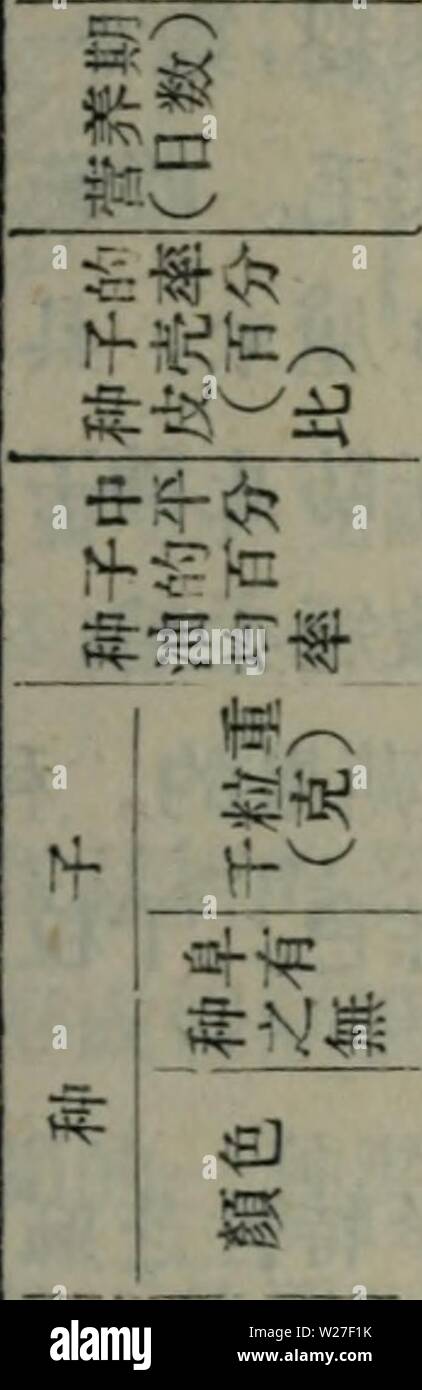 种 子
顏色
种阜
之有
無
千粒重
(克)
种子中
油的平
均百分
率
种子的
皮壳率
(百分
比)
营养期
(日数)
alamy
Image ID: W27F1K
www.alamy.com